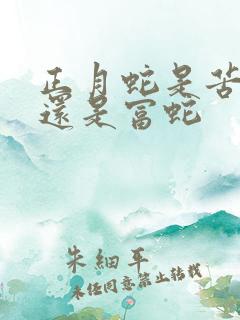 正月蛇是苦
還是富蛇
朱細平
未经同意禁止转载